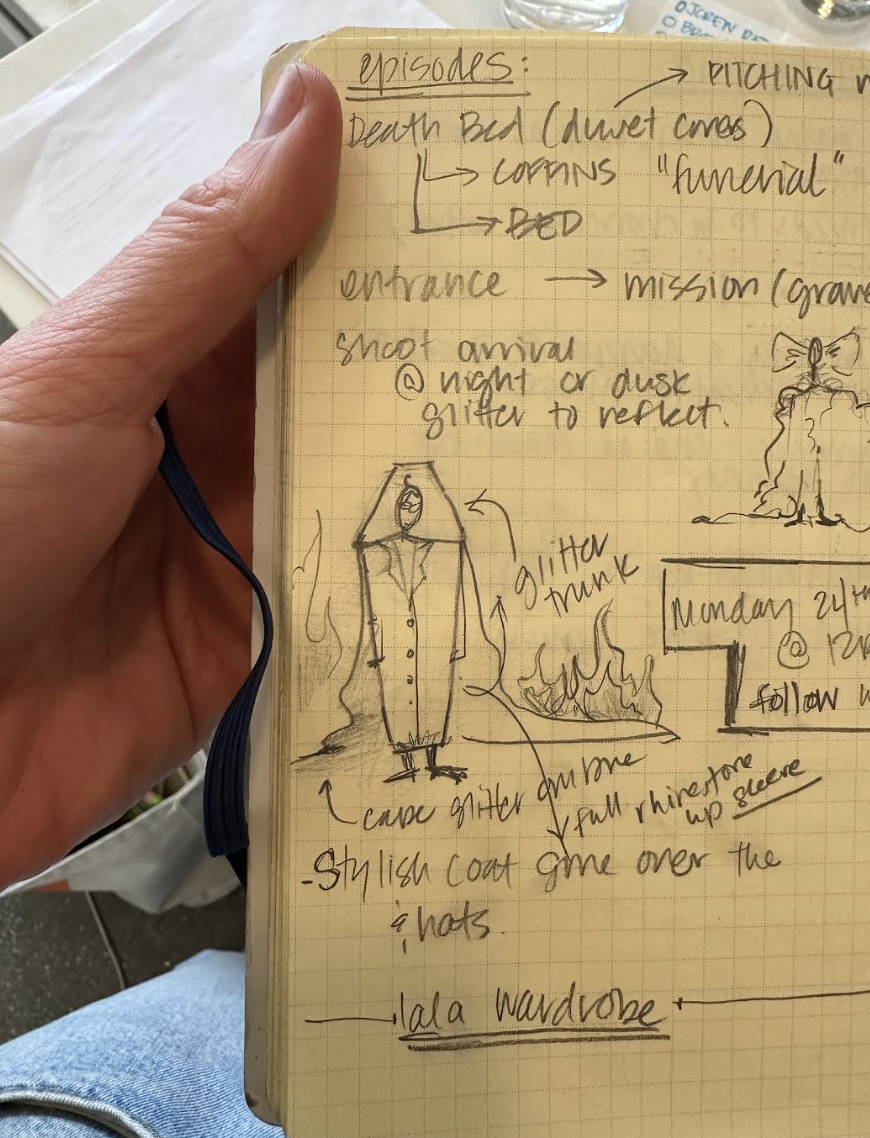 episodes:
PITCHING
Death Bed (duvet covers)
COFFINS "funerial"
BED
entrance → mission (grave
shoot arrival
@ night or dusk
glitter to reflect.
glitter
trunk
Monday 24th
@ 12
follow
cape glitter ombre
full rhinestone
up sleeve
-Stylish coat gone over the
& hats.
lala wardrobe